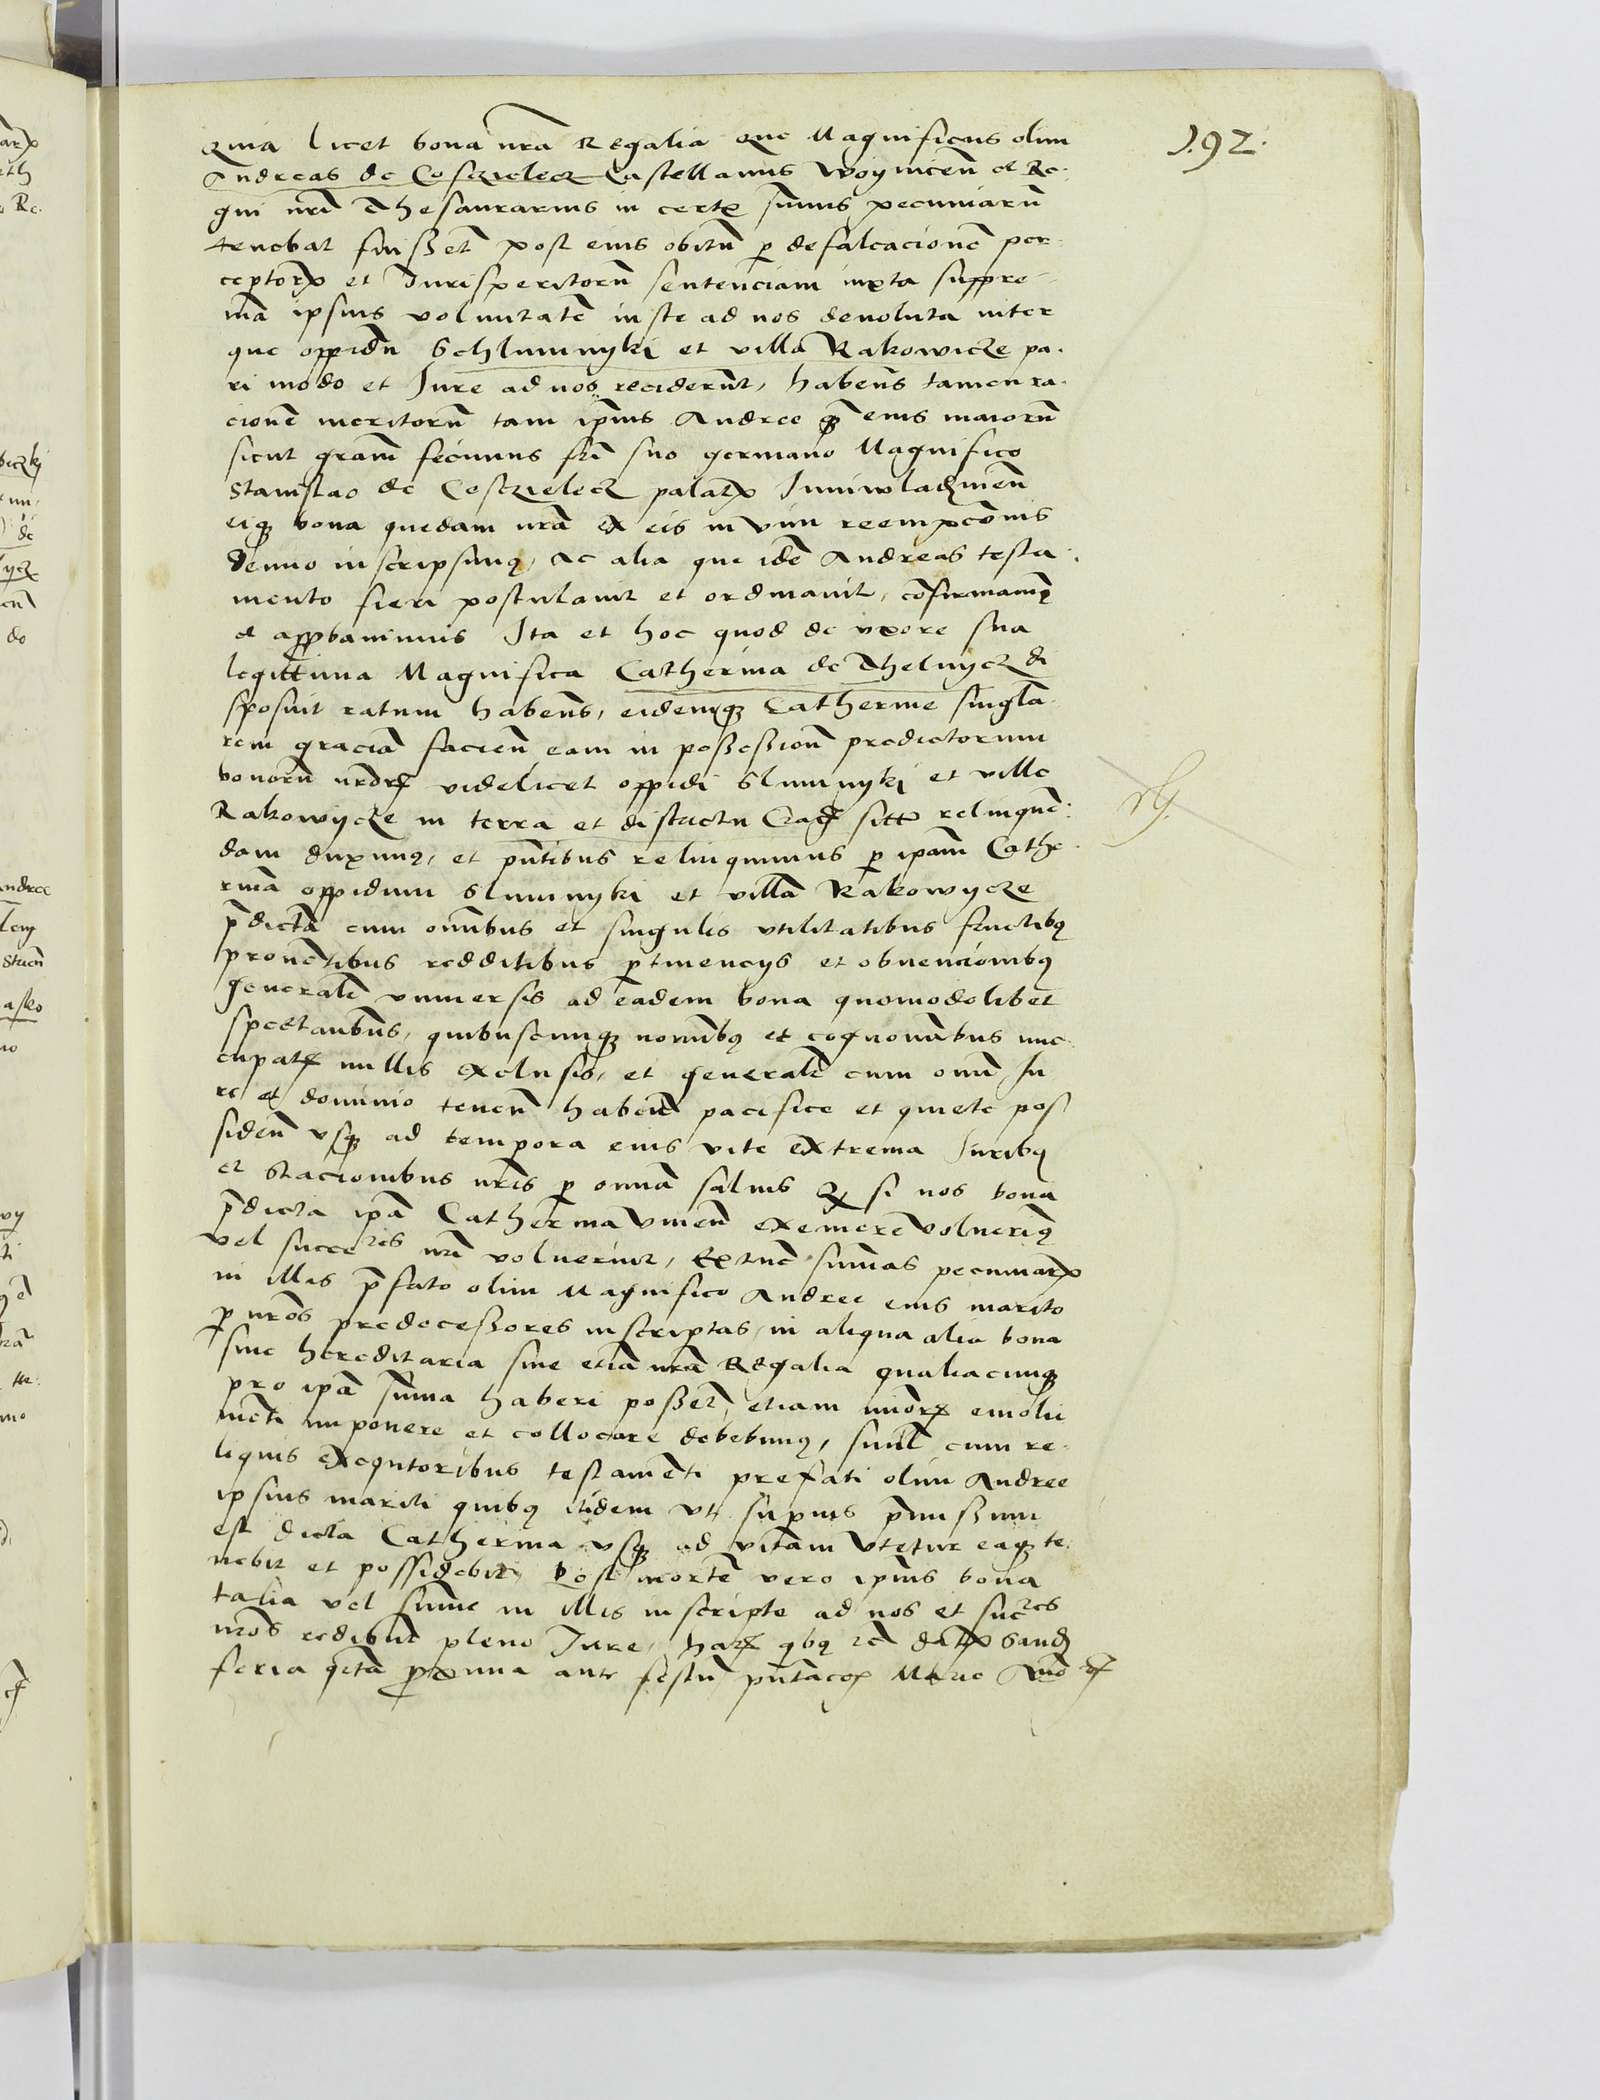 192.
Quia licet bona nrã Regalia que Magnificus olim
Andreas de Cosczielecz Castellanus Woynicen̄ et Re-
gni nrĩ Thesaurarius in certꝭ sũmis pecuniarũ
tenebat fuissẽt post eius obitũ ꝑ defalcacionẽ per-
ceptorꝝ et Jurisperitorũ sentenciam iuxta suppre-
mã ipsius voluntatẽ iuste ad nos devoluta inter
que oppidũ Schlumnyki et villã Rakowicze pa-
ri modo et Jure ad nos reciderũt, habens tamen ra-
cionẽ meritorũ tam ipĩus Andree qᷓ eius maiorũ
sicut grãm fecimus frĩ suo germano Magnifico
Stanislao de Cosczielecz palatꝰ Juniwladimien̄
eiqꝫ bona quedam nrã ex eis in vim reempcõnis
denuo inscripsimꝰ, ac alia que idẽ Andreas testa-
mento fieri postulavit et ordinavit, cõfirmavimꝰ
et approbavimus Ita et hoc quod de uxore sua
legittima Magnifica Catherina de Thelnycz di
sposuit ratum habens, eidemqꝫ Catherine singla-
rem graciã facien̄ eam in possessiõn predictorum
bonorũ nrõrꝝ videlicet oppidi Slumnyki et ville
Rakowycze in terra et districtu Crac̄ sittꝭ relinquẽ-
dam duximꝰ, et pñtibus relinquimus ꝑ ipãm Cathe-
rinã oppidum Slumnyki et villã Rakowycze
p̃dictã cum oĩnibus et singulis utilitatibus fructibꝰ
proventibus redditibus ꝑtinencys et obvencionibꝰ
generalr̃ universis ad eadem bona quomodolibet
spectantibus, quibuscunqꝫ nominibꝰ et cognoĩbus nuc-
cupatꝭ nullis exclusis, et generalr̃ cum oĩni Ju
re et dominio tenen̄ haben̄ pacifice et quiete pos
siden̄ usqꝫ ad tempora eius vite extrema Juribꝰ
et Stacionibus nrĩs ꝑ omnia salvis Qꝫ si nos bona
p̃dicta ipã Catherina viven̄ eximere voluerimꝰ
vel succeres nrĩ voluerint, Extũc sum̃as pecuniarꝝ
in illis p̃fato olim Magnifico Andree eius marito
ꝑ nrõs predecessores inscriptas, in aliqua alia bona
sive hereditaria sive etiã nrã Regalia qualiacunqꝫ
pro ipã sum̃a haberi possẽt, etiam minorꝭ emolu
mẽti imponere et collocare debebimꝰ, simul cum re-
liquis exequtoribus testamẽti prefati olim Andree
ipsius mariti quibꝰ itidem ut supius p̃missum
est dicta Catherina usqꝫ ad vitam utetur eaqꝫ te-
nebit et possidebit, Post mortẽ vero ipĩus bona
talia vel sum̃e in illis inscripte ad nos et sucres
nrõs redibũt pleno Jure, harꝭ qᷤbꝰ rẽ datꝭ Sand
feria qᷤtã ꝓxima ante festũ pñtacõis Marie Anno ꝛc